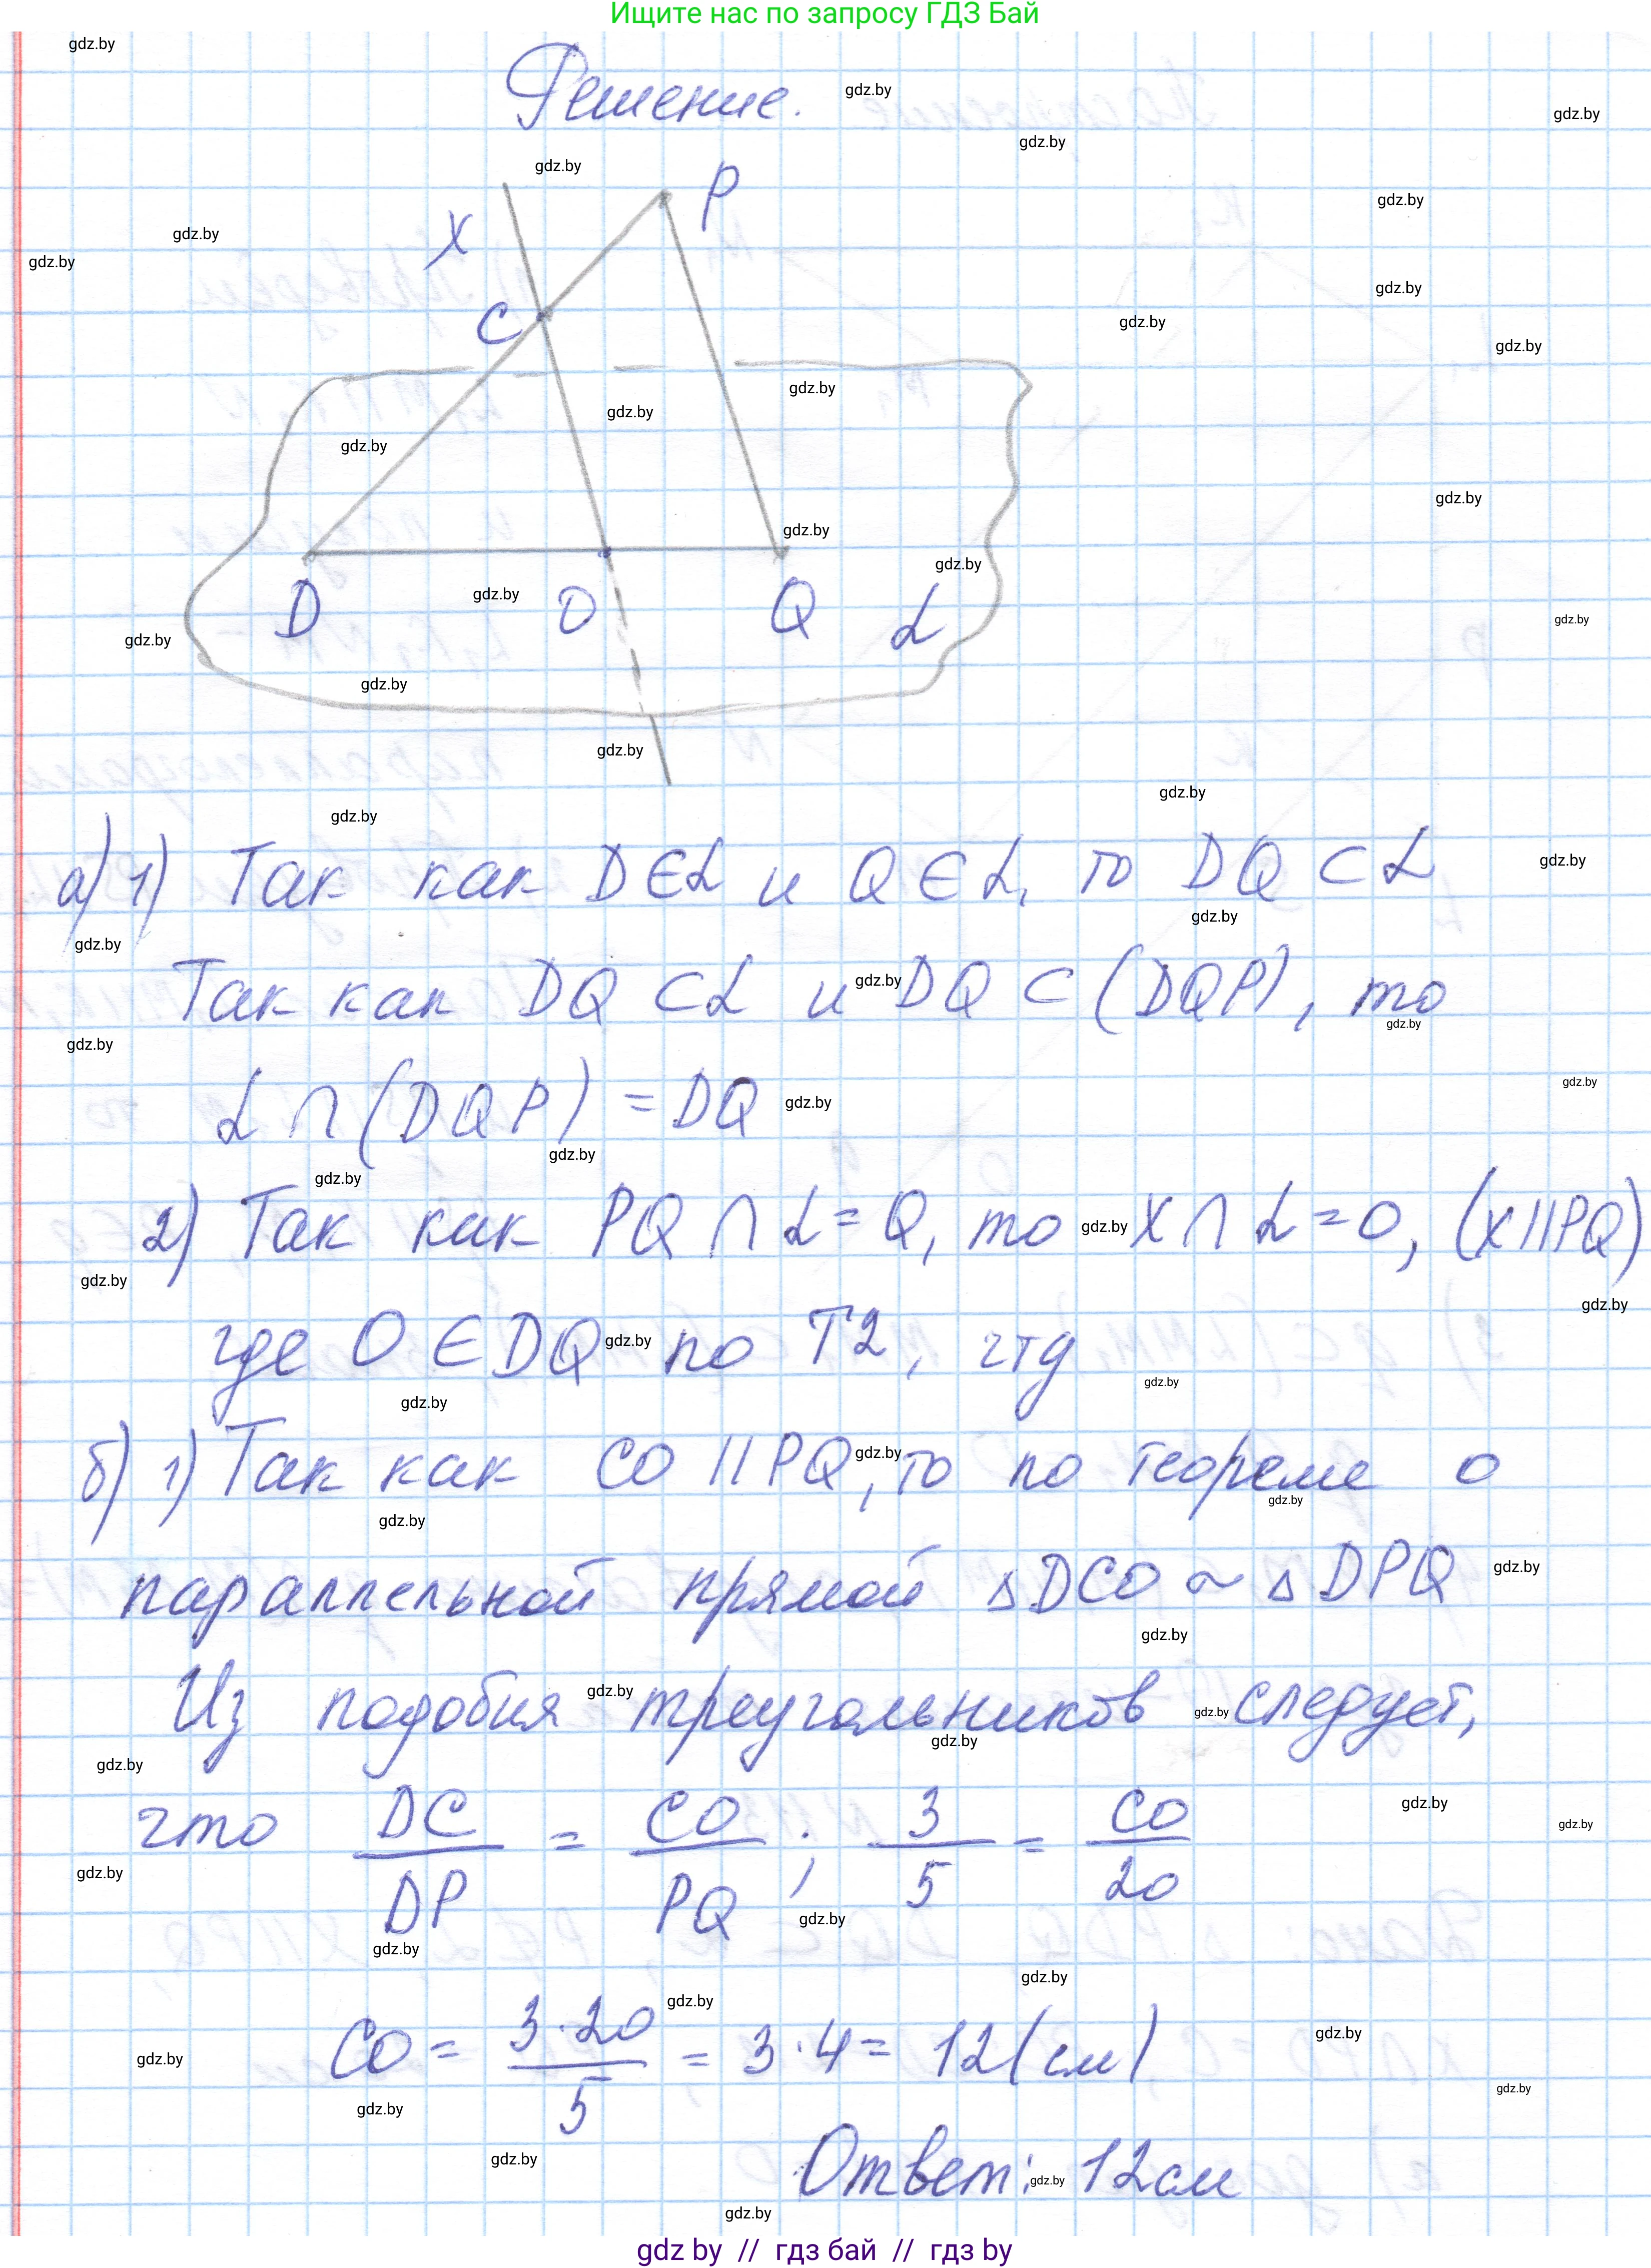 Ищите нас по запросу ГДЗ Бай
Решение.
x
P
C
D
O
Q
α
а) 1) Так как D∈α и Q∈α, то DQ⊂α
Так как DQ⊂α и DQ⊂(DQP), то
α∩(DQP)=DQ
2) Так как PQ∩α=Q, то x∩α=O, (x||PQ)
где O∈DQ по Т2, чтд
б) 1) Так как CO||PQ, то по теореме о
параллельной прямой ΔDCO~ΔDPQ
Из подобия треугольников следует,
что DC/DP = CO/PQ; 3/5 = CO/20
CO = 3·20/5 = 3·4 = 12(см)
Ответ: 12см
gdz by // гдз бай // гдз by